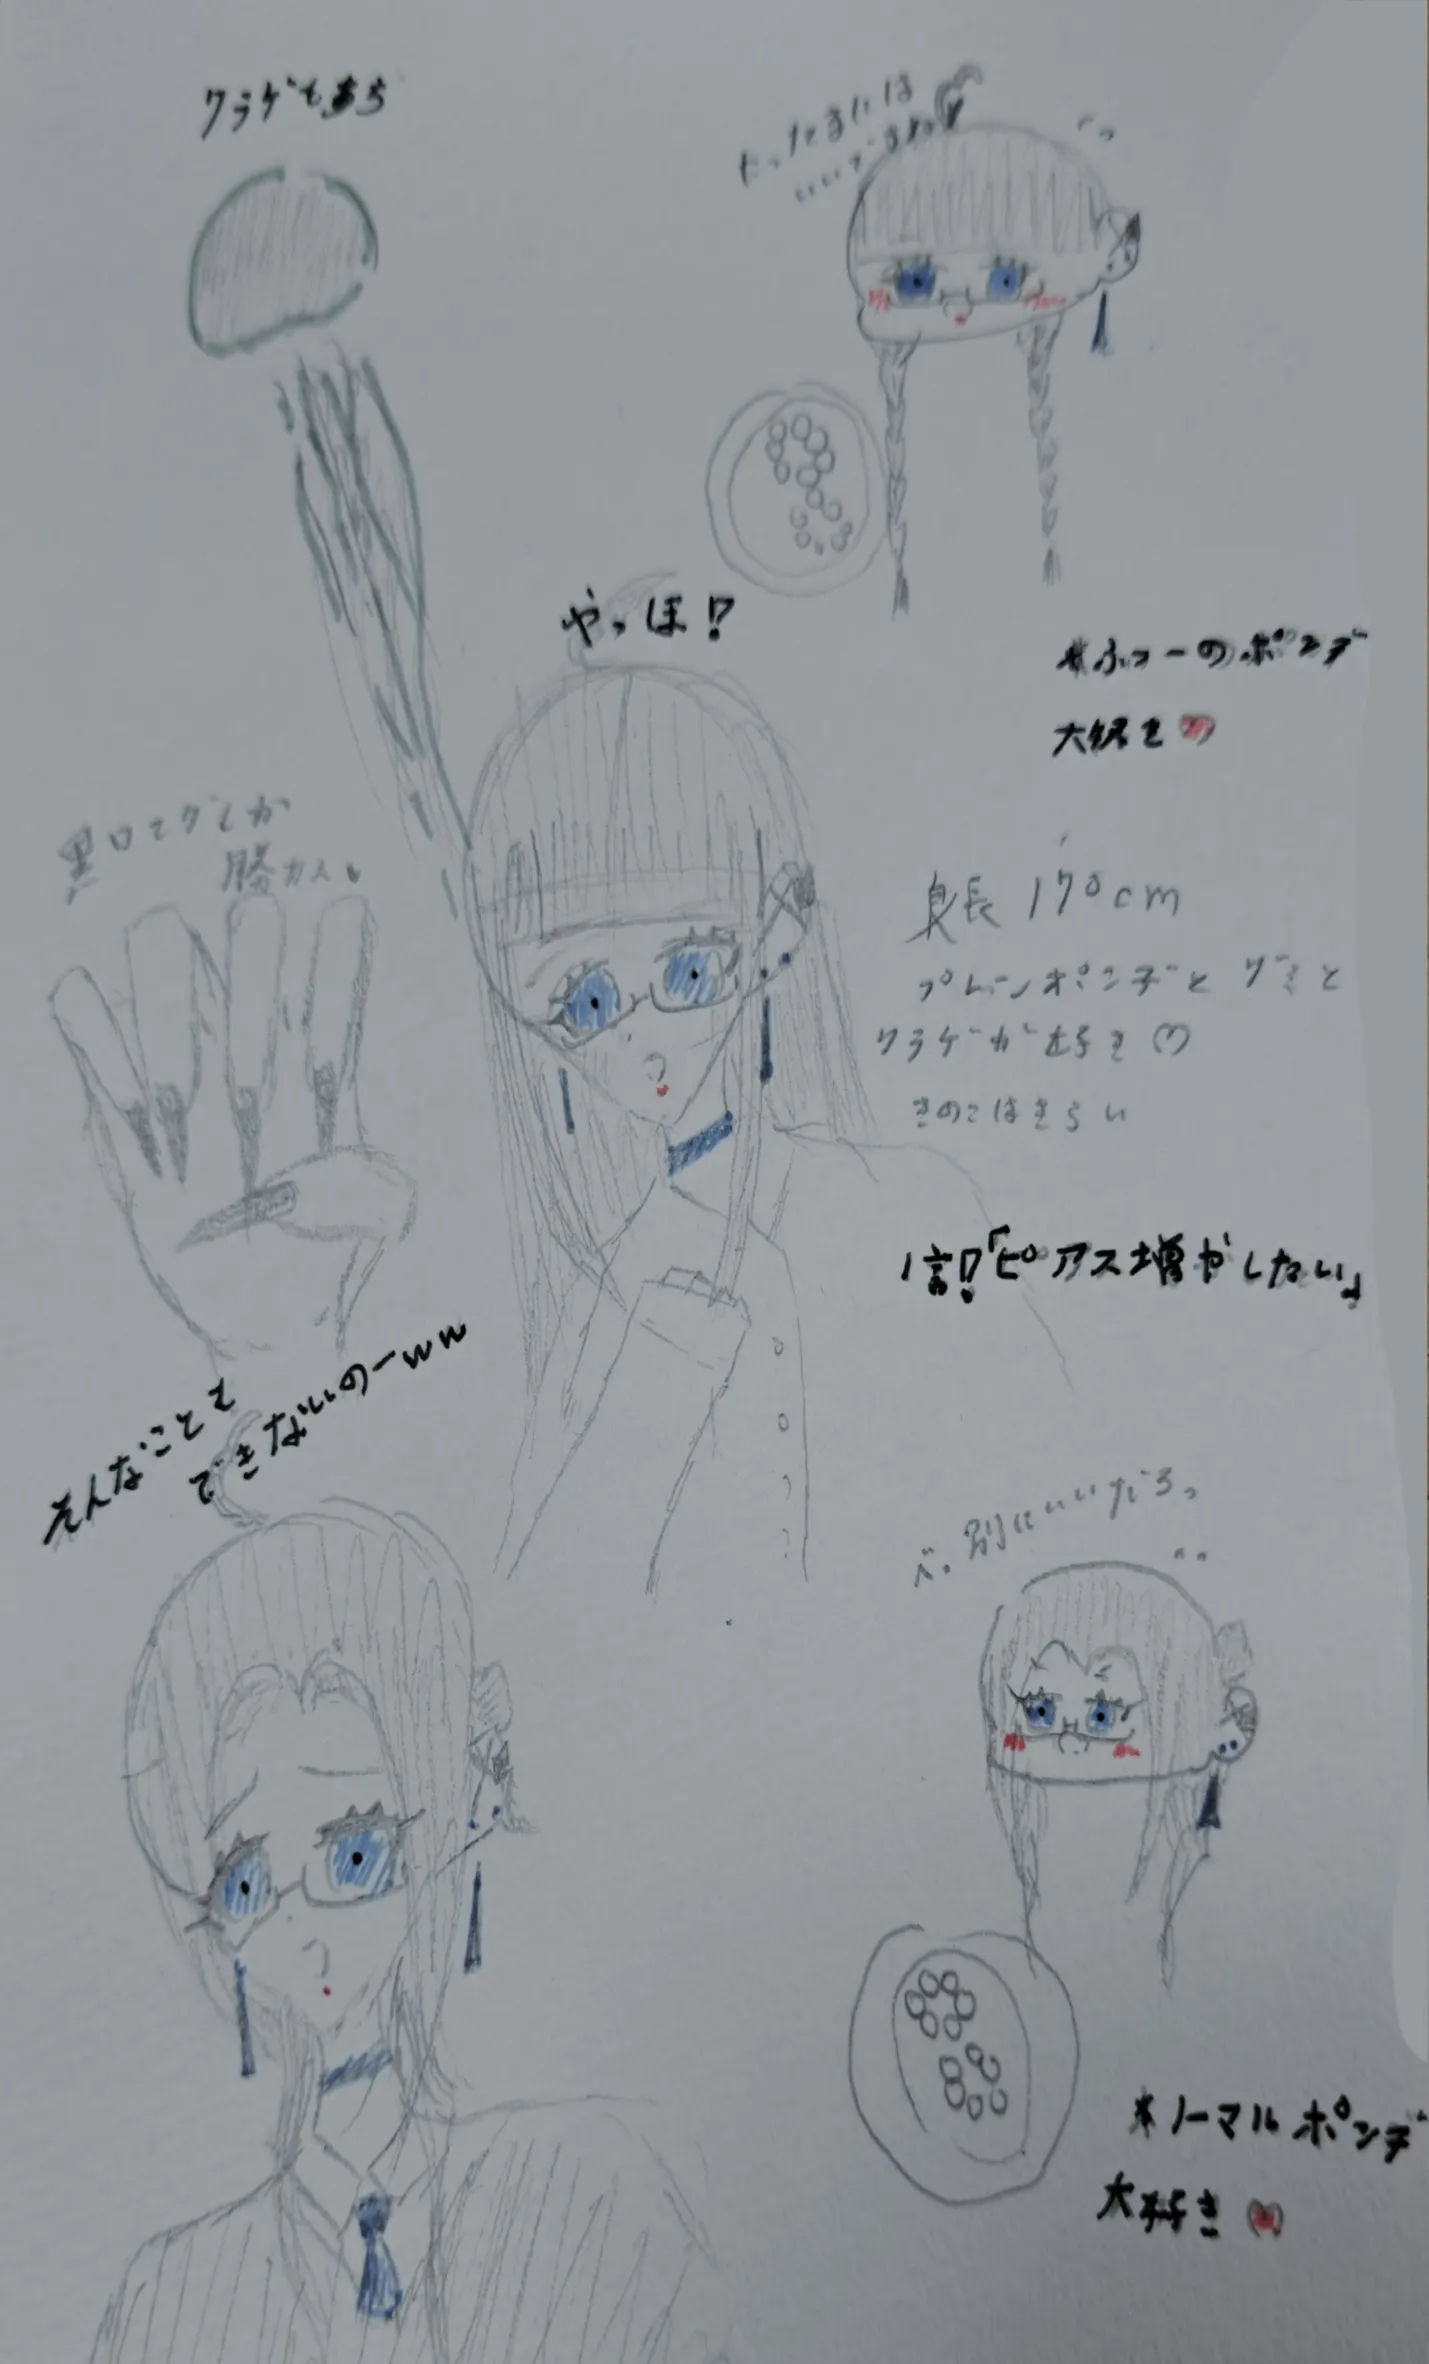 クラゲもあち
いいでるやっ
やっほ!?
*ふつーのポンデ
大好き
黒ロングしか
勝たん。
身長 170cm
プレーンポンデとグミと
クラゲが好き♡
きのこはきらい
1言!?「ピアス増やしたい」
そんなことも
できないのーww
べっ別にいいだろっ
*ノーマルポンデ
大好き